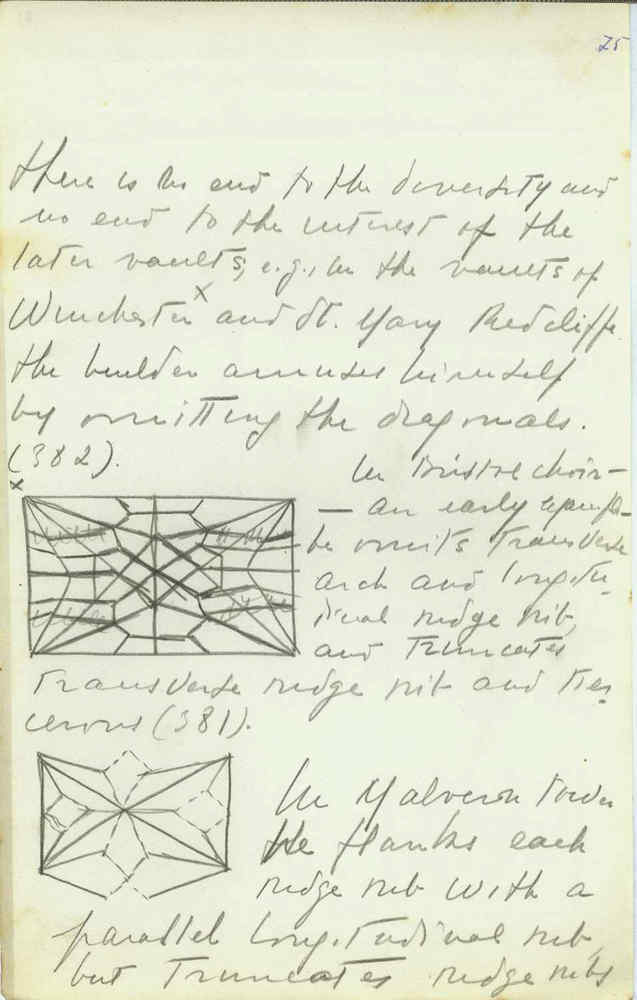 25
there is no end to the diversity and
no end to the interest of the
later vaults, e.g., in the vaults of
Winchester x and St. Mary Redcliffe
the builder amuses himself
by omitting the diagonals.
(382).
x
In Bristol choir –
– an early example –
he omits transverse
arch and longitu-
dinal ridge rib,
and truncates
transverse ridge rib and tier-
cerons (381).
In Malvern tower
he flanks each
ridge rib with a
parallel longitudinal rib,
but truncates ridge ribs